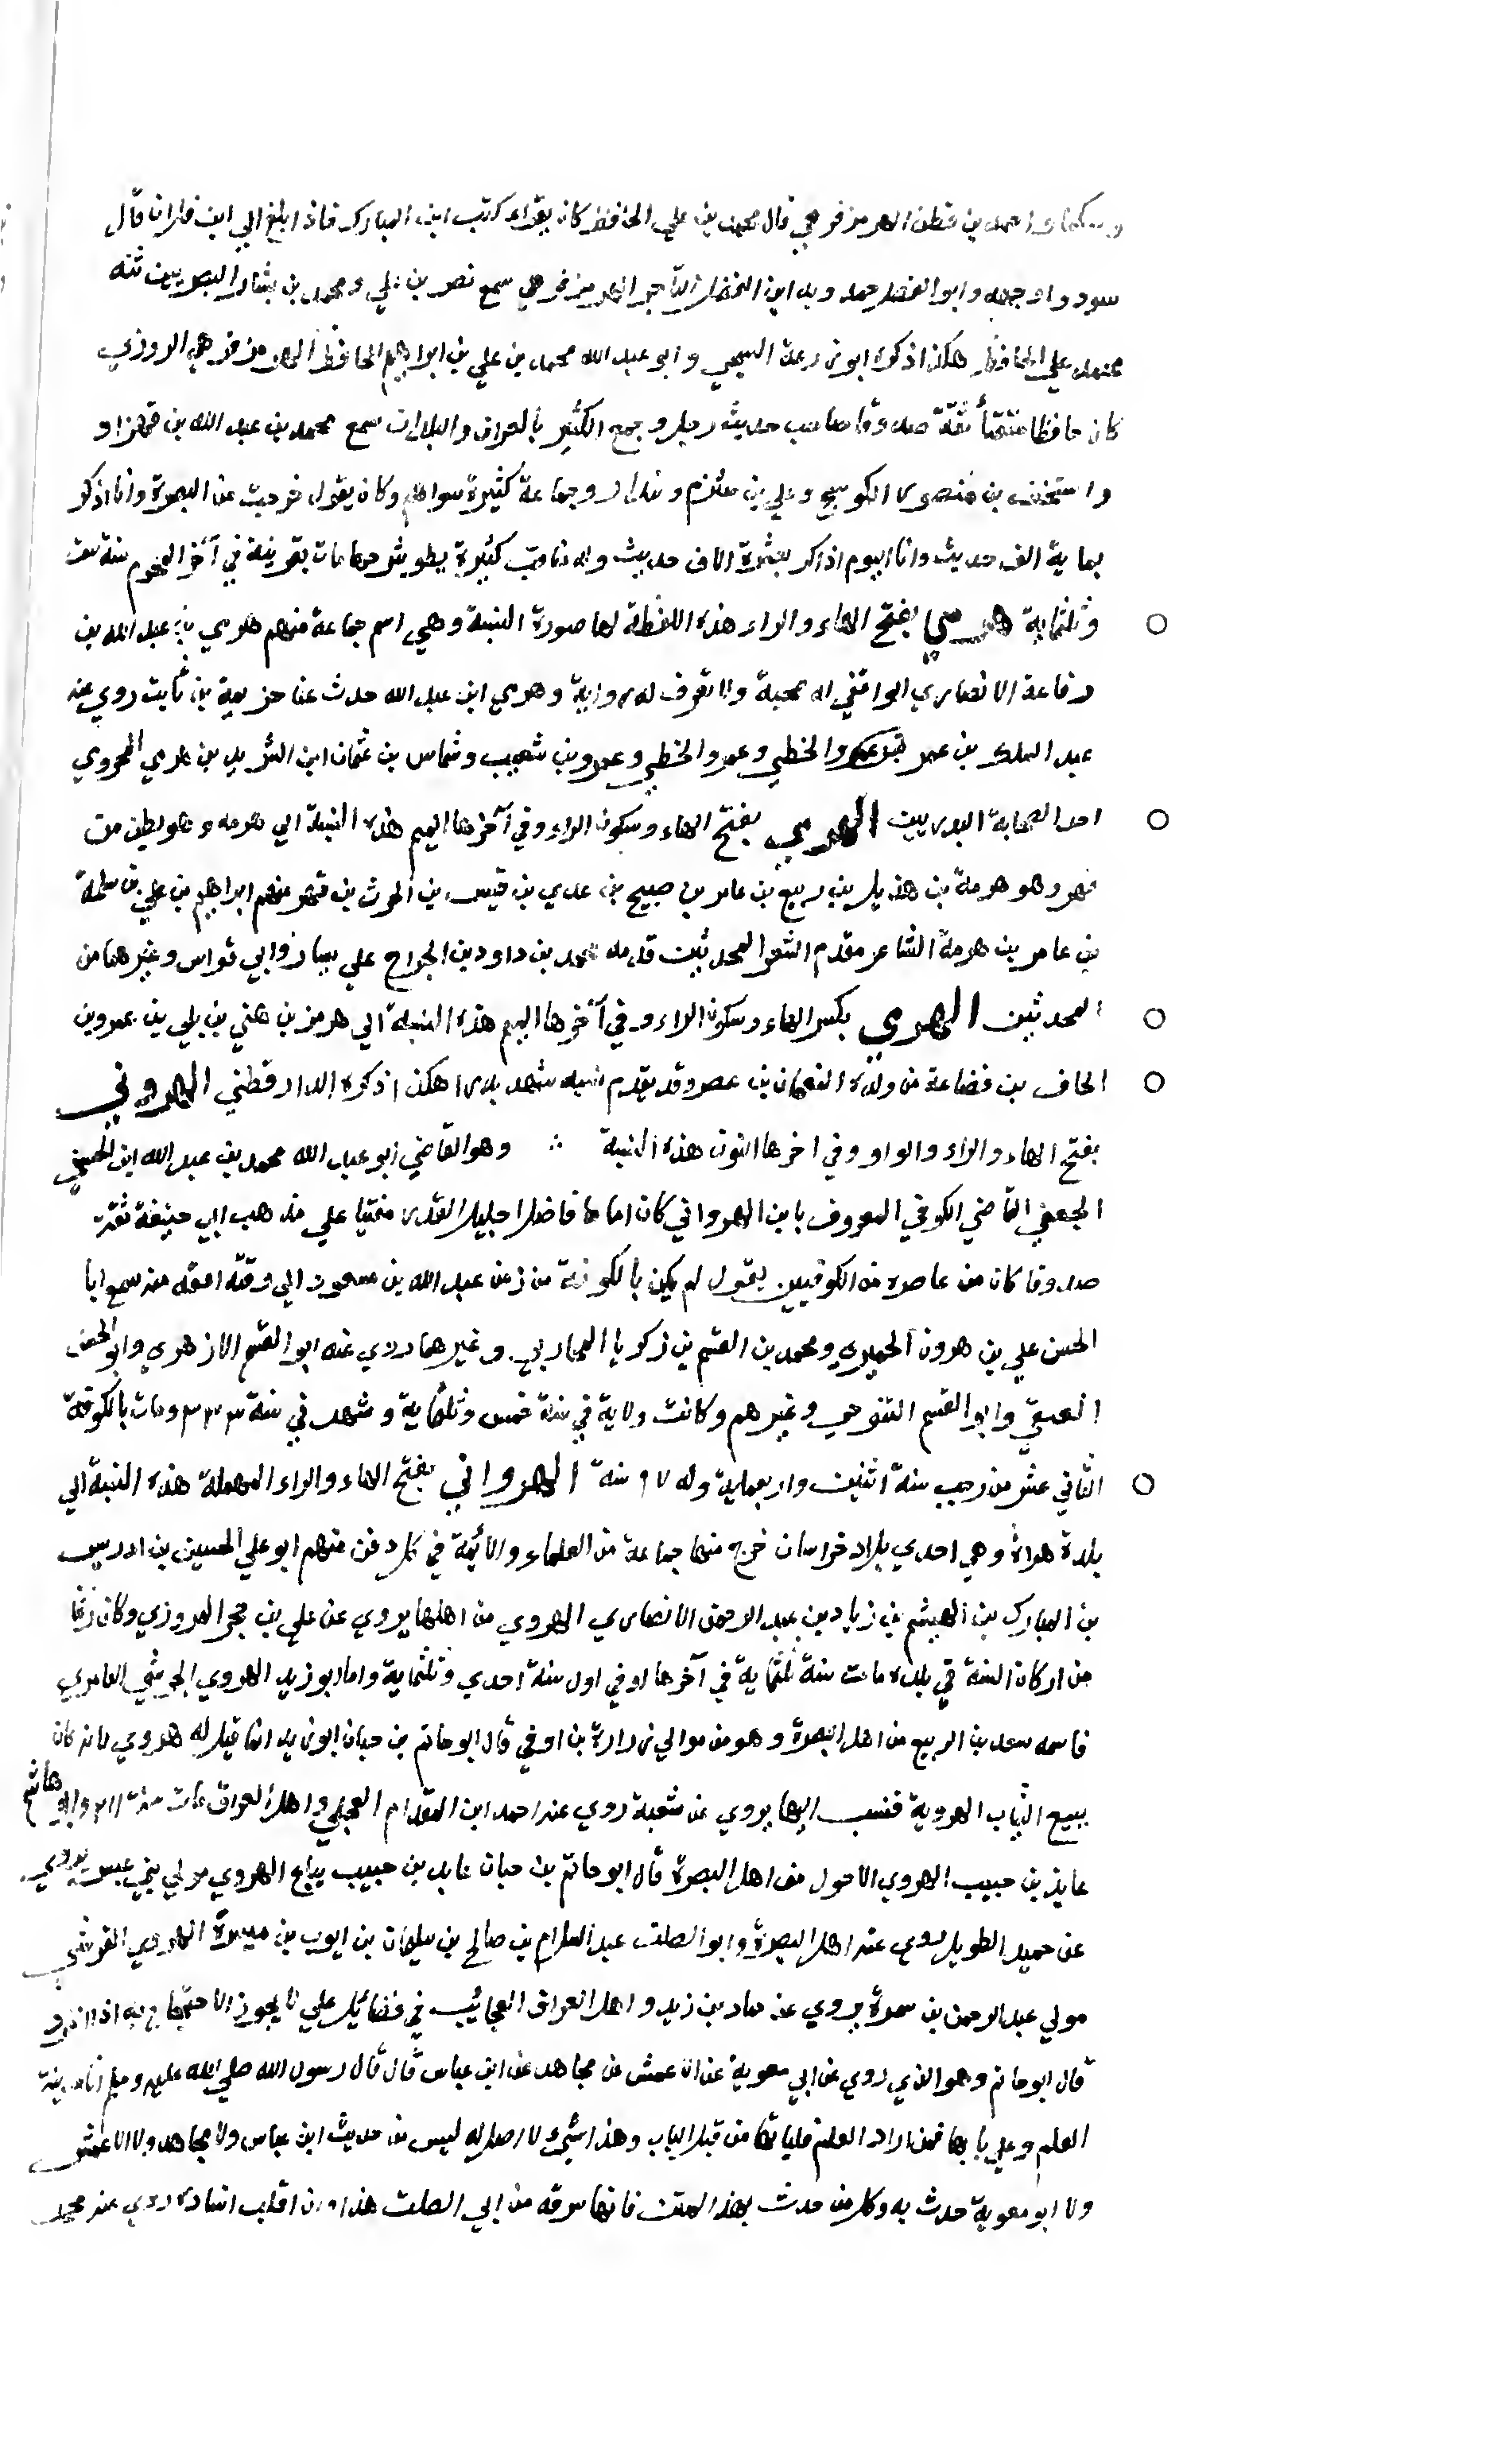 واحمد بن قطن الهرمزفرهي قال محمد بن علي الحافظ كان يقراء كتب ابن المبارك فاذا بلغ الي ابن فلان قال
سودوا وجهه وابو الفضل حمدويه ابن الخطاب التاجر الهرمزفرهي سمع نصر بن علي ومحمد بن بشار البصريين ثنه
محمد بن علي الحافظ هكذا ذكره ابو زرعة السبحي وابو عبد الله محمد بن علي بن ابراهيم الحافظ الهرمزفرهي المروزي
كان حافظا متقنا ثقة صدوقا صاحب حديث رحل وجمع الكثير بالعراق والبلاد سمع محمد بن عبد الله بن قهزاد
واسحق بن منصور الكوسج وعلي بن خشرم وبندار وجماعة كثيرة سواهم وكان يقول خرجت من البصرة وانا اذكر
بماية الف حديث وانا اليوم اذاكر بعشرة الاف حديث وله مناقب كثيرة يطول شرحها مات بقرينة في آخر المحرم سنة ست
وثلثماية هرمي بفتح الهاء والراء هذه اللفظة لها صورة النسبة وهي اسم جماعة منهم هرمي بن عبد الله بن
رفاعة الانصاري الواقفي له صحبة ولا تعرف له رواية وهرمي ابن عبد الله حدث عن خزيمة بن ثابت روي عنه
عبد الملك بن عمرو الخطمي وعمرو بن شعيب وشماس بن عثمان ابن الشريد بن هرمي المخزومي
احد الصحابة البدريين الهرمي بفتح الهاء وسكون الراء وفي آخرها الميم هذه النسبة الي هرمه وهو بطن من
فهر وهو هرمة بن هذيل بن ربيع بن عامر بن صبيح بن عدي بن قيس بن الحرث بن فهر منهم ابراهيم بن علي بن سلمة
بن عامر بن هرمة الشاعر مقدم الشعرا المحدثين قدمه محمد بن داود بن الجراح علي بشار وابي نواس وغيرهما من
المحدثين الهرمي بكسر الهاء وسكون الراء وفي آخرها الميم هذه النسبة الي هرمز بن هني بن بلي بن عمرو بن
الحاف بن قضاعة من ولده النعمان بن عصر وقد تقدم نسبه شهد بدرا هكذا ذكره الدارقطني الهرواني
بفتح الهاء والراء والواو وفي اخرها النون هذه النسبة ∴ وهو القاضي ابو عبد الله محمد بن عبد الله ابن الحسين
الجعفي القاضي الكوفي المعروف بابن الهرواني كان اماما فاضلا جليل القدر مفتيا علي مذهب ابي حنيفة ثقة
صدوقا كان من عاصره من الكوفيين يقول لم يكن بالكوفة من زمن عبد الله بن مسعود الي وقته افقه منه سمع ابا
الحسن علي بن هرون الحميري ومحمد بن القسم بن زكريا المحاربي وغيرهما روي عنه ابو القسم الازهري وابو الحسن
العتيقي وابو القسم التنوخي وغيرهم وكانت ولاية في سنة خمس وثلثماية وشهد في سنة ٣٣٣ ومات بالكوفة
الثاني عشر من رجب سنة اثنين واربعماية وله ٩٧ سنة الهرواني بفتح الهاء والراء المهملة هذه النسبة الي
بلدة هراة وهي احدي بلاد خراسان خرج منها جماعة من العلماء والائمة في كل فن منهم ابو علي الحسين بن ادريس
بن المبارك بن الهيثم بن زياد بن عبد الرحمن الانصاري الهروي من اهلها يروي عن علي بن حجر المروزي وكان ركنا
من اركان السنة في بلده مات سنة ثلثماية في آخرها او في اول سنة احدي وثلثماية واما ابو زيد الهروي الحرشي العامري
فاسمه سعد بن الربيع من اهل البصرة وهو من موالي زرارة بن اوفي قال ابو حاتم بن حبان ابو زيد انما قيل له هروي لانه كان
يبيع الثياب الهروية فنسب اليها يروي عن شعبة روي عنه احمد ابن المقدام العجلي واهل العراق مات سنة ٢١١ وابو هاشم
عايذ بن حبيب الهروي الاحول من اهل البصرة قال ابو حاتم بن حبان عايد بن حبيب بياع الهروي مولي بني عبس يروي
عن حميد الطويل روي عنه اهل البصرة وابو الصلت عبد السلام بن صالح بن سليمان بن ايوب بن ميسرة الهروي القرشي
مولي عبد الرحمن بن سمرة يروي عن حماد بن زيد واهل العراق العجائب في فضائل علي لا يجوز الاحتجاج به اذا انفرد
قال ابو حاتم وهو الذي روي عن ابي معوية عن الاعمش عن مجاهد عن ابن عباس قال قال رسول الله صلي الله عليه وسلم انا مدينة
العلم وعلي بابها فمن اراد العلم فلياتها من قبل الباب وهذا شيء لا اصل له ليس من حديث ابن عباس ولا مجاهد ولا الاعمش
ولا ابو معوية حدث به وكل من حدث بهذا المتن فانما سرقه من ابي الصلت هذا وان اقلب اسناده روي عنه محمد